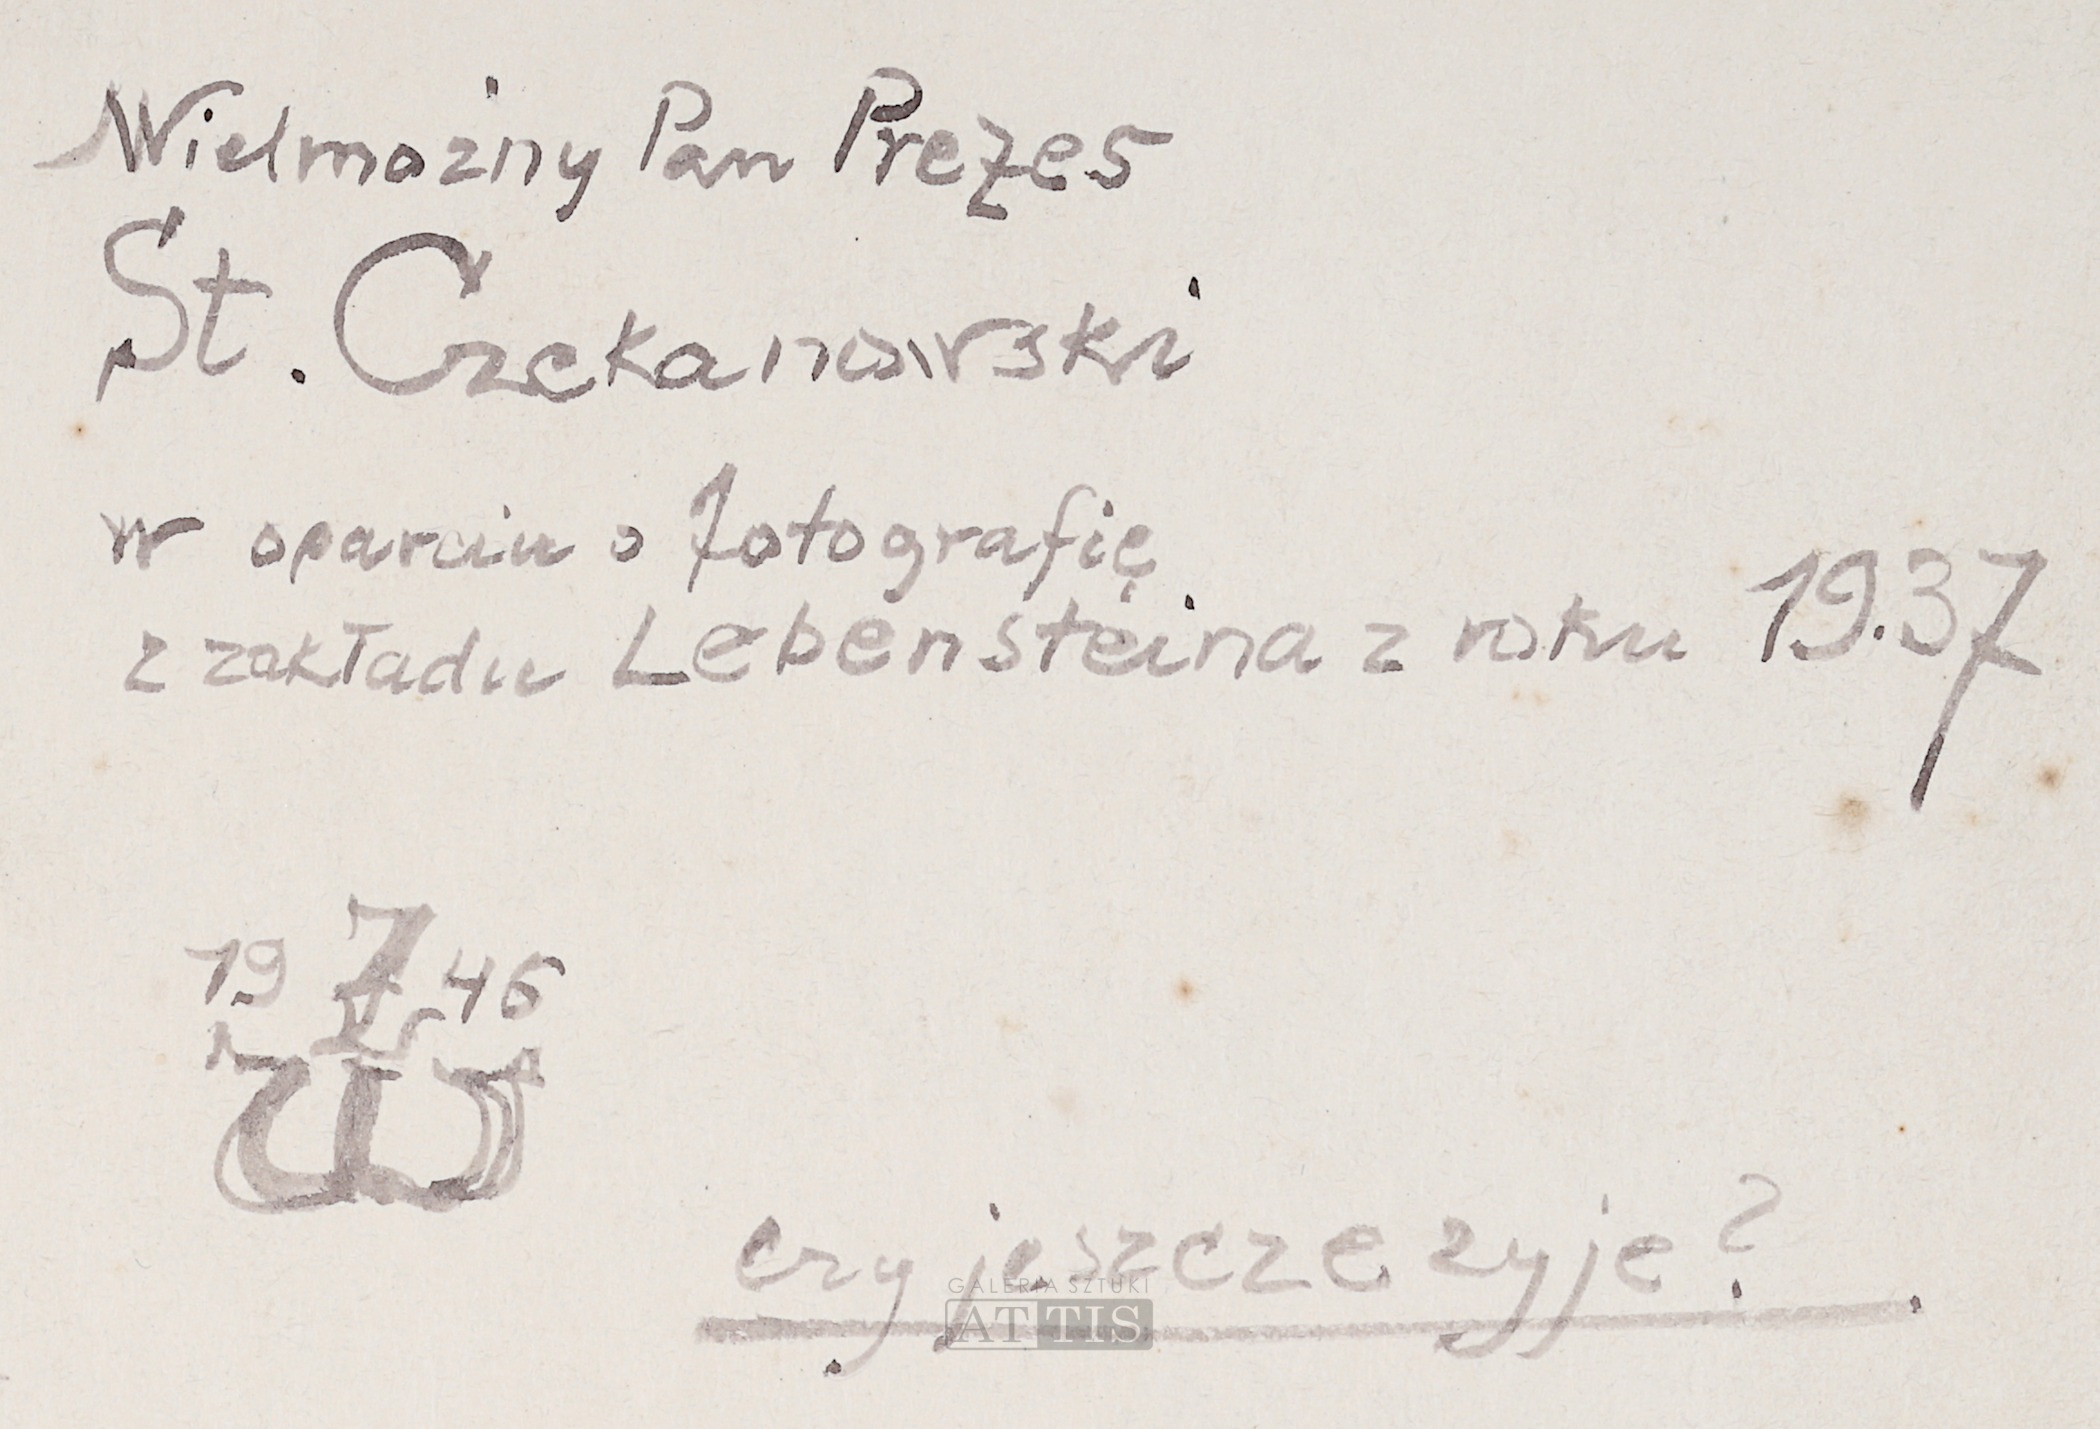 Wielmożny Pan Prezes
St. Czekanowski
w oparciu o fotografię
z zakładu Lebensteina z roku 19.37
19 46
czy jeszcze żyje?
GALERIA SZTUKI
ATTIS